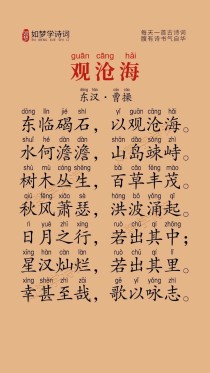 如梦学诗词
每天一首古诗词
腹有诗书气自华
guān cāng hǎi
观沧海
东汉·曹操
dōng lín jié shí yǐ guān cāng hǎi
东临碣石，以观沧海。
shuǐ hé dàn dàn shān dǎo sǒng zhì
水何澹澹，山岛竦峙。
shù mù cóng shēng bǎi cǎo fēng mào
树木丛生，百草丰茂。
qiū fēng xiāo sè hóng bō yǒng qǐ
秋风萧瑟，洪波涌起。
rì yuè zhī xíng ruò chū qí zhōng
日月之行，若出其中；
xīng hàn càn làn ruò chū qí lǐ
星汉灿烂，若出其里。
xìng shèn zhì zāi gē yǐ yǒng zhì
幸甚至哉，歌以咏志。